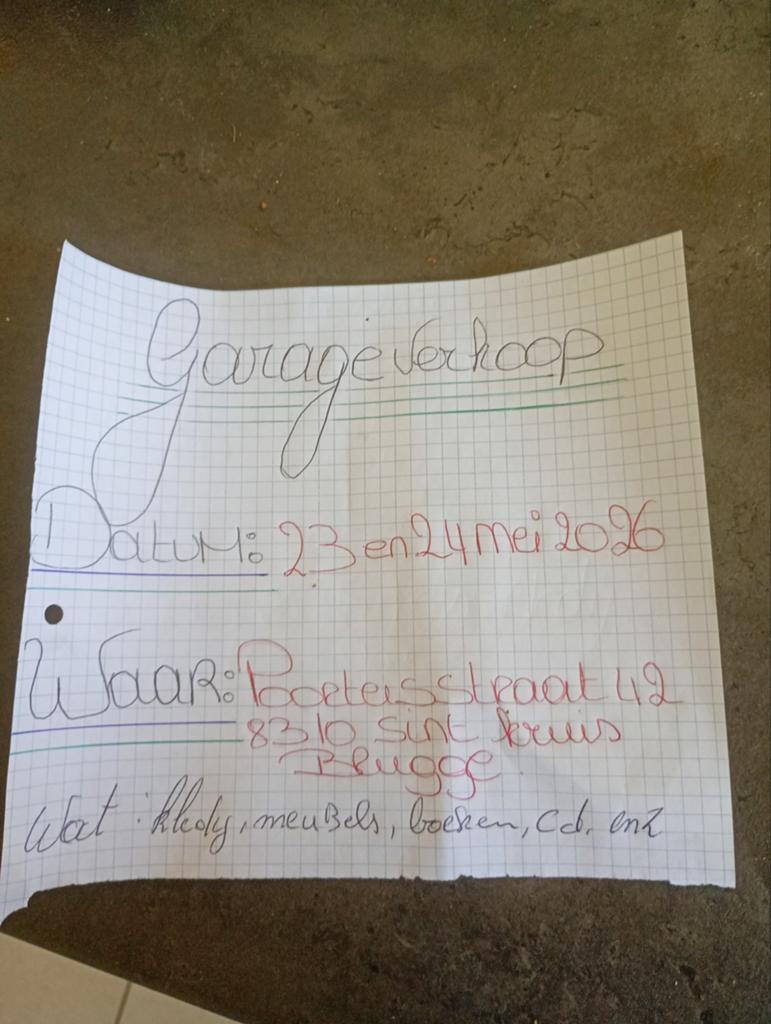 Garageverkoop
Datum: 23 en 24 mei 2026
Waar: straat 42
8310 Sint Kruis
Brugge
Wat: kledij, meubels, boeken, cd, enz